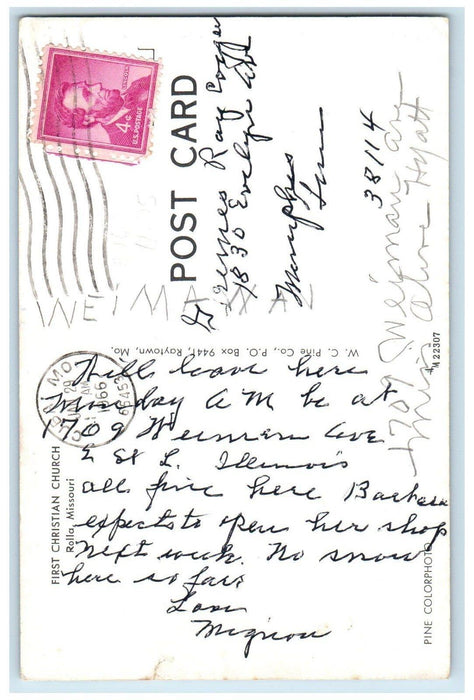 LINCOLN
4¢
U.S. POSTAGE
POST CARD
Ray
1830 Evelyn
Memphis
Tenn
38114
WEIMAWAN
1709 Weiman ave
Olive Hyatt
W. C. Pine Co., P.O. Box 9441, Raytown, Mo.
M22307
MO
JAN 29
AM
1966
65453
FIRST CHRISTIAN CHURCH
Rolla, Missouri
PINE COLORPHOTO
Will leave here
AM be at
1709 Weiman Ave
E St L. Illinois
all fine here Barbara
expects to open her shop
next week. No snow
here so far
Love
Mignon